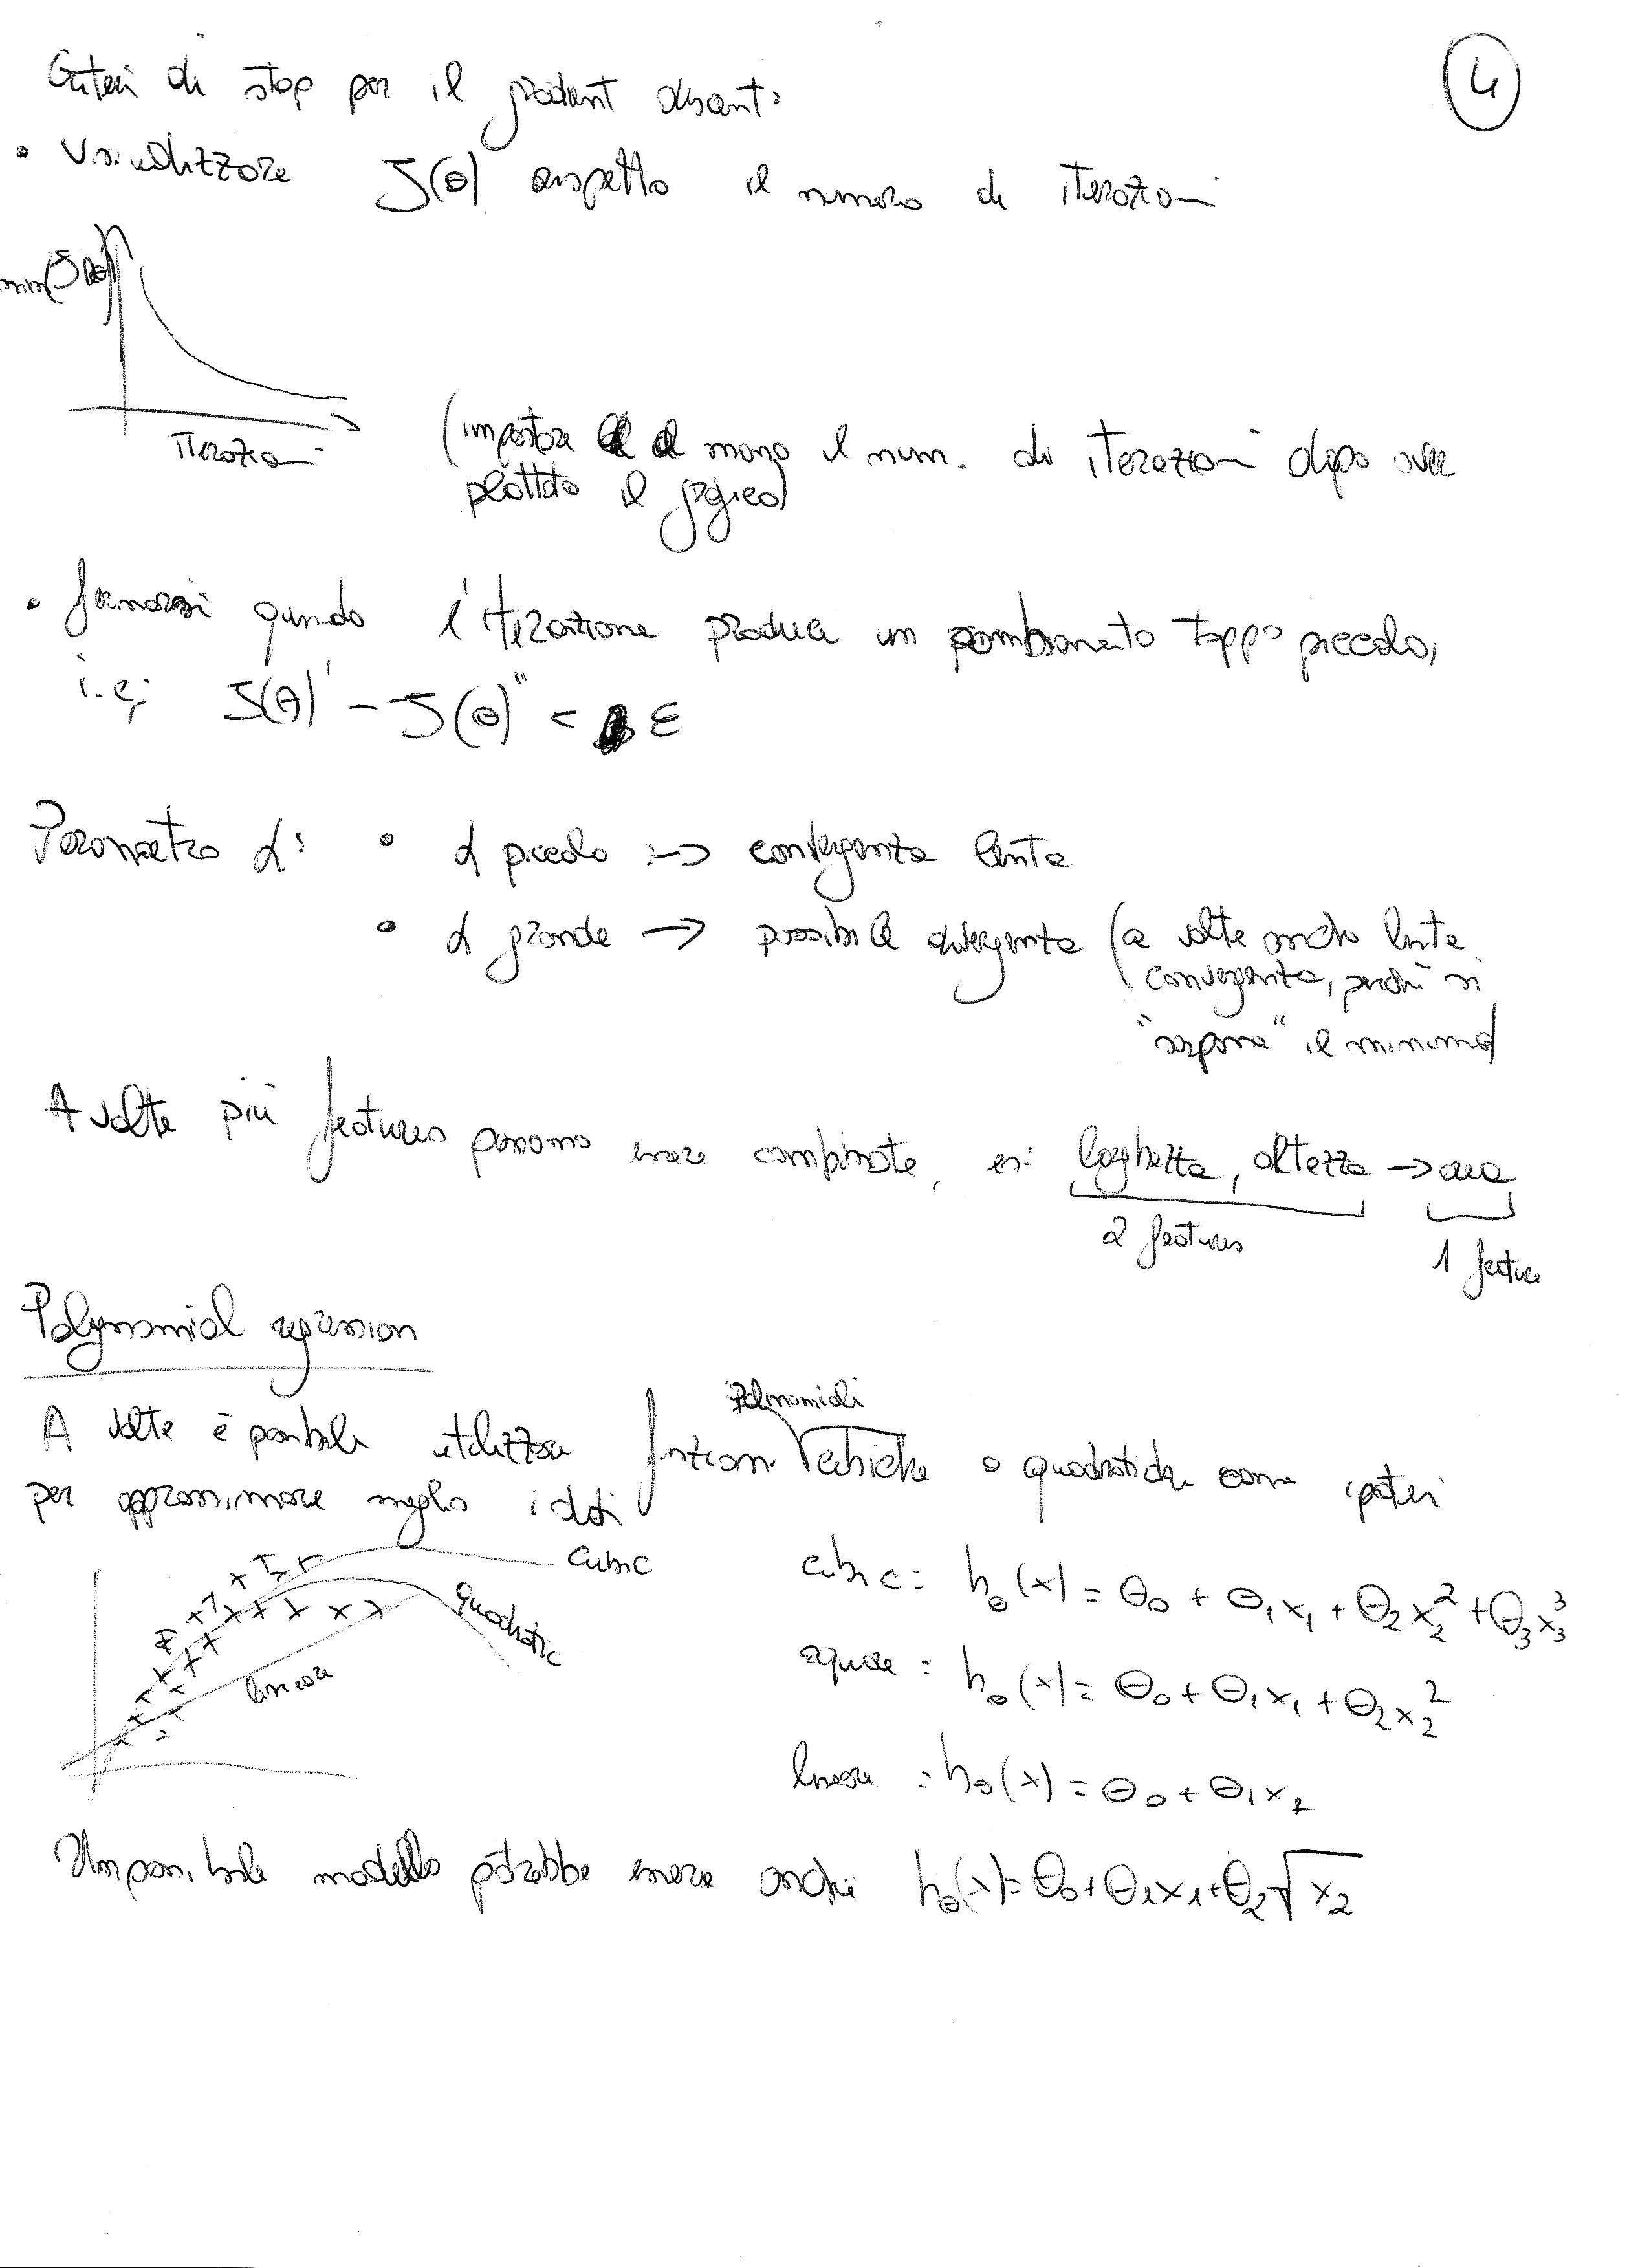 4
Criteri di stop per il gradient descent:
• Visualizzare J(θ) rispetto il numero di iterazioni
min(J(θ))
iterazioni
(impostare a mano il num. di iterazioni dopo aver
plottato il grafico)
• fermarsi quando l'iterazione produce un cambiamento troppo piccolo,
i.e.: J(θ)' - J(θ)'' < ε
Parametro α: • α piccolo :-> convergenza lenta
• α grande -> possibile divergenza (a volte anche lenta
convergenza, perchè si
"sorpassa" il minimo)
A volte più features possono essere combinate, es: larghezza, altezza -> area
2 features
1 feature
Polynomial regression
polinomiali
A volte è possibile utilizzare funzioni cubiche o quadratiche come ipotesi
per approssimare meglio i dati
cubic
quadratic
lineare
cubic: h_θ(x) = θ₀ + θ₁x₁ + θ₂x₂² + θ₃x₃³
square: h_θ(x) = θ₀ + θ₁x₁ + θ₂x₂²
lineare: h_θ(x) = θ₀ + θ₁x₁
Un possibile modello potrebbe essere anche h_θ(x) = θ₀ + θ₁x₁ + θ₂√x₂